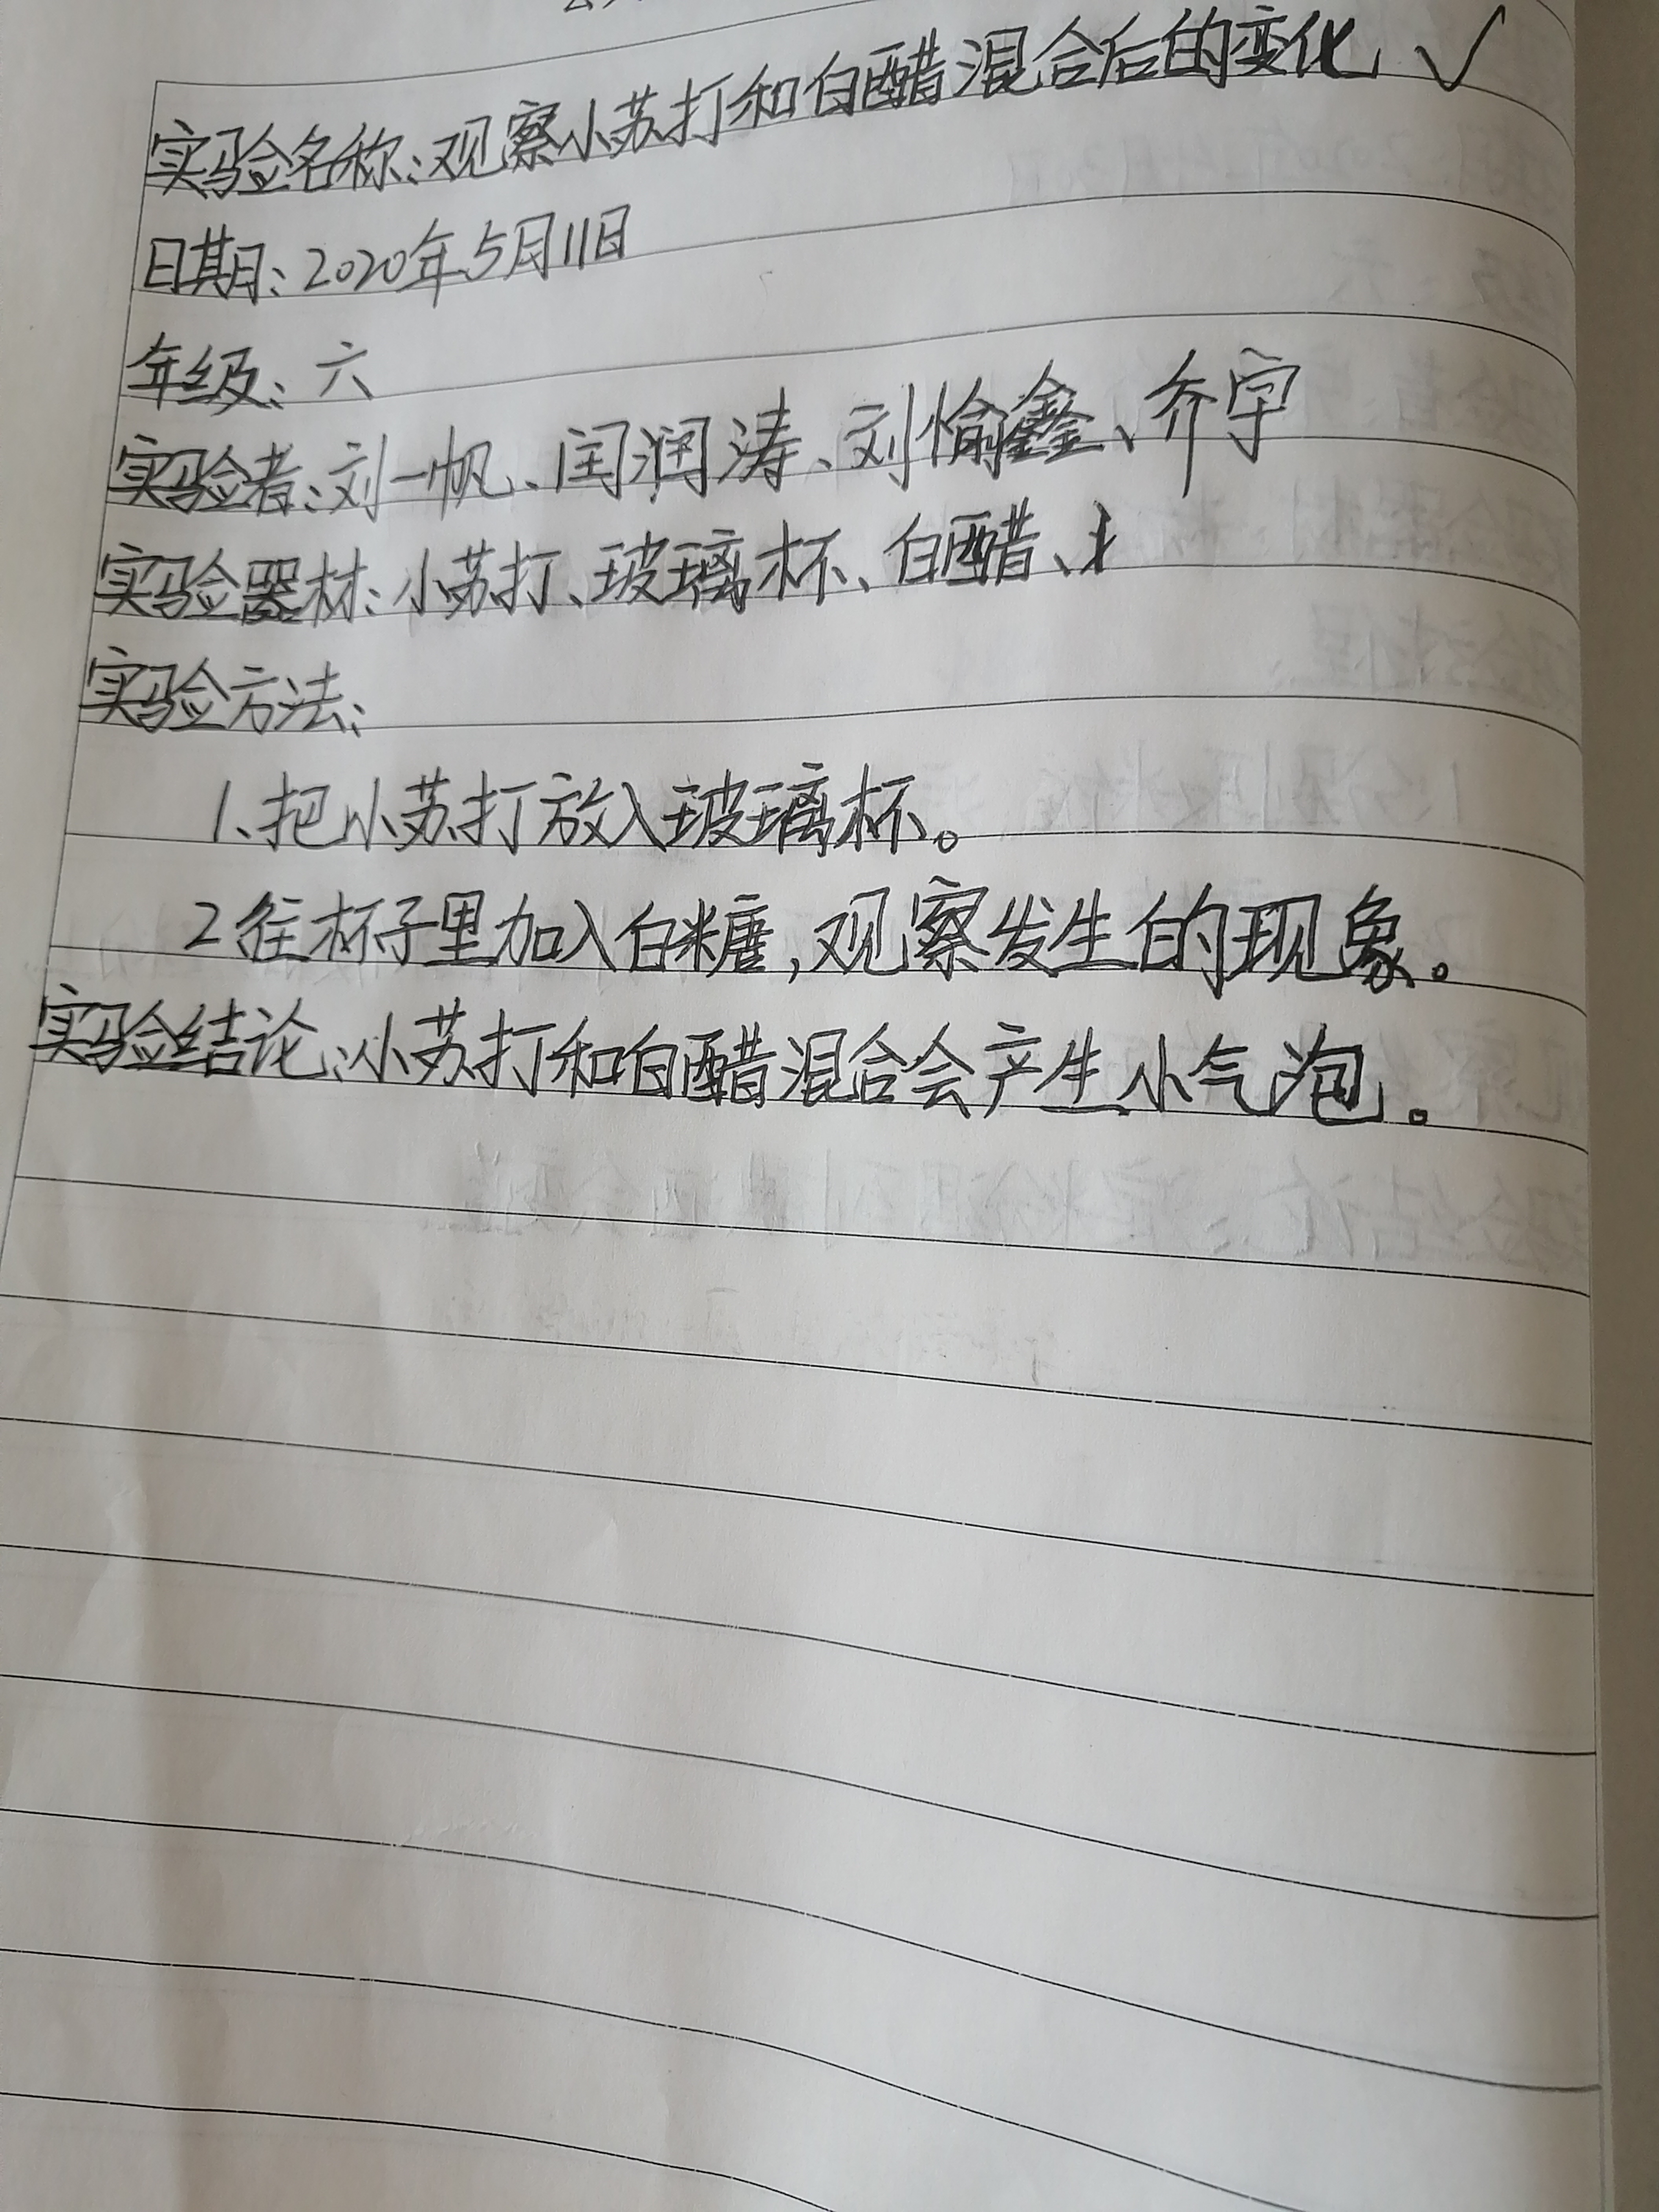 实验名称:观察小苏打和白醋混合后的变化 ✓
日期:2020年5月11日
年级:六
实验者:刘一帆、闰润涛、刘愉鑫、乔宇
实验器材:小苏打、玻璃杯、白醋、
实验方法:
1、把小苏打放入玻璃杯。
2往杯子里加入白糖,观察发生的现象。
实验结论:小苏打和白醋混合会产生小气泡。